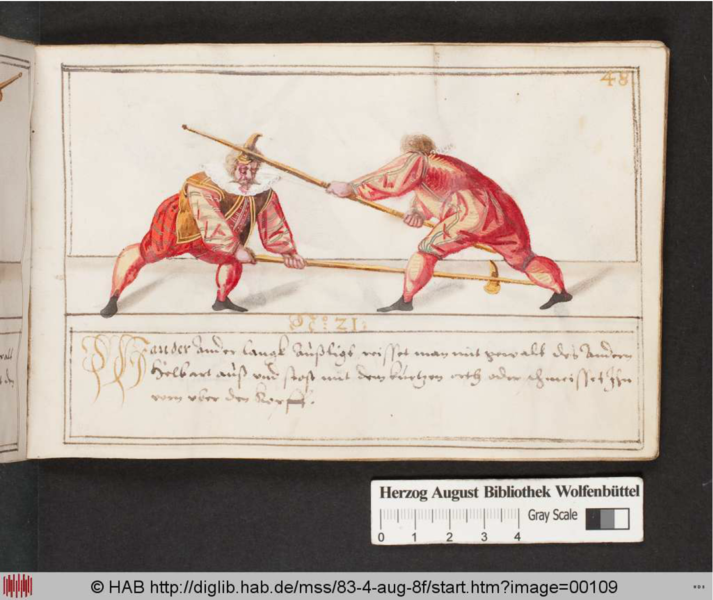 48
No: 21:
der ander langt außligt reisset man mit gewalt des andern
Helbart auß und stost mit dem kurtzen orth oder schmeisset ihn
vom uber den Kopff.
Herzog August Bibliothek Wolfenbüttel
0 1 2 3 4
Gray Scale
© HAB http://diglib.hab.de/mss/83-4-aug-8f/start.htm?image=00109